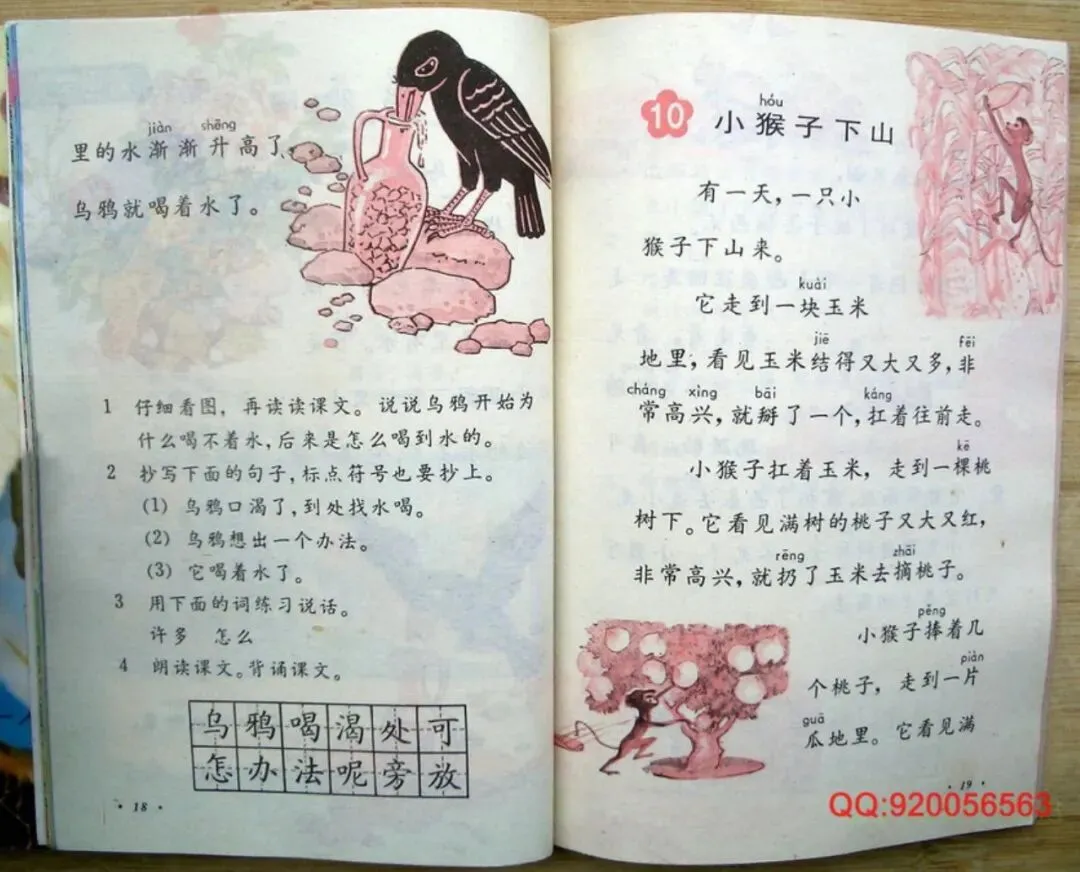 jiàn shēng
里的水渐渐升高了,
乌鸦就喝着水了。
1 仔细看图，再读读课文。说说乌鸦开始为
什么喝不着水，后来是怎么喝到水的。
2 抄写下面的句子，标点符号也要抄上。
(1) 乌鸦口渴了，到处找水喝。
(2) 乌鸦想出一个办法。
(3) 它喝着水了。
3 用下面的词练习说话。
许多 怎么
4 朗读课文。背诵课文。
乌鸦喝渴处可
怎办法呢旁放
·18·
hóu
10 小猴子下山
有一天，一只小
猴子下山来。
kuài
它走到一块玉米
jiē fēi
地里，看见玉米结得又大又多，非
cháng xìng bāi káng
常高兴，就掰了一个，扛着往前走。
kē
小猴子扛着玉米，走到一棵桃
树下。它看见满树的桃子又大又红，
rēng zhāi
非常高兴，就扔了玉米去摘桃子。
pěng
小猴子捧着几
piàn
个桃子，走到一片
guā
瓜地里。它看见满
·19·
QQ:920056563